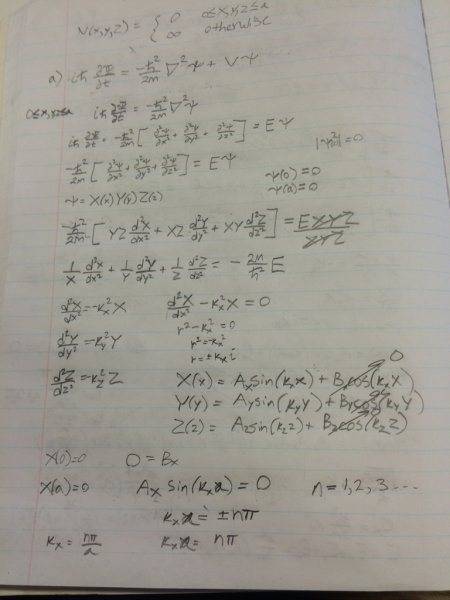 V(x,y,z) = { 0 0≤x,y,z≤a
∞ otherwise
a) iħ ∂Ψ/∂t = -ħ²/2m ∇²Ψ + VΨ
0≤x,y,z≤a iħ ∂Ψ/∂t = -ħ²/2m ∇²Ψ
iħ ∂Ψ/∂t = -ħ²/2m [ ∂²Ψ/∂x² + ∂²Ψ/∂y² + ∂²Ψ/∂z² ] = EΨ
-ħ²/2m [ ∂²Ψ/∂x² + ∂²Ψ/∂y² + ∂²Ψ/∂z² ] = EΨ
Ψ(0) = 0
Ψ(a) = 0
Ψ = X(x) Y(y) Z(z)
-ħ²/2m [ YZ d²X/dx² + XZ d²Y/dy² + XY d²Z/dz² ] = EXYZ/XYZ
1/X d²X/dx² + 1/Y d²Y/dy² + 1/Z d²Z/dz² = - 2m/ħ² E
d²X/dx² = -kx² X
d²X/dx² - kx² X = 0
r² - kx² = 0
d²Y/dy² = -ky² Y
r² = kx²
r = ±kx i
d²Z/dz² = -kz² Z
X(x) = Ax sin(kx x) + Bx cos(kx x) 0
Y(y) = Ay sin(ky y) + By cos(ky y)
Z(z) = Az sin(kz z) + Bz cos(kz z)
X(0) = 0 0 = Bx
X(a) = 0 Ax sin(kx a) = 0 n = 1, 2, 3 ...
kx a = ±nπ
kx = nπ/a kx a = nπ